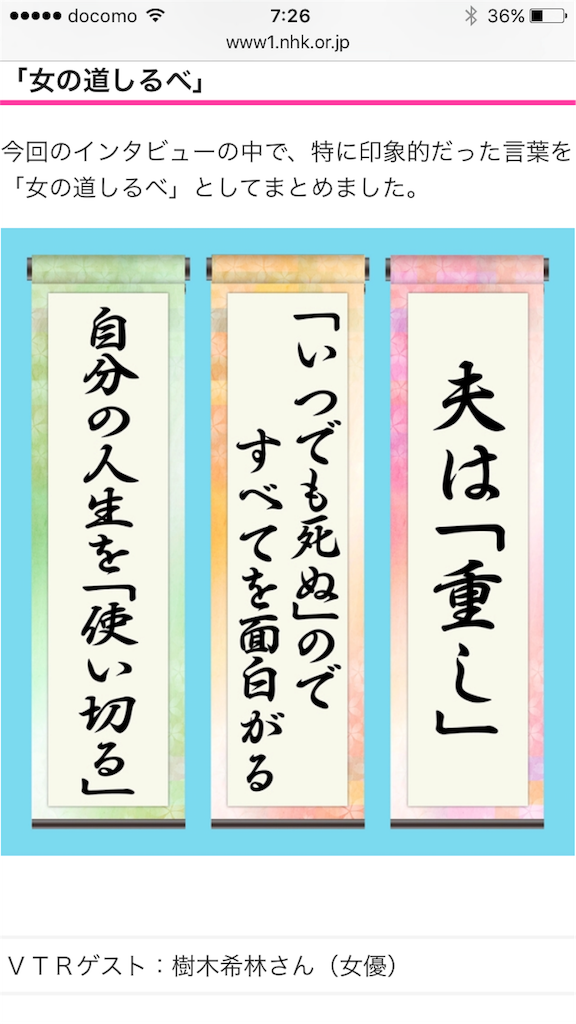 docomo 7:26 36%
www1.nhk.or.jp
「女の道しるべ」
今回のインタビューの中で、特に印象的だった言葉を
「女の道しるべ」としてまとめました。
夫は「重し」
「いつでも死ぬ」ので
すべてを面白がる
自分の人生を「使い切る」
ＶＴＲゲスト：樹木希林さん（女優）